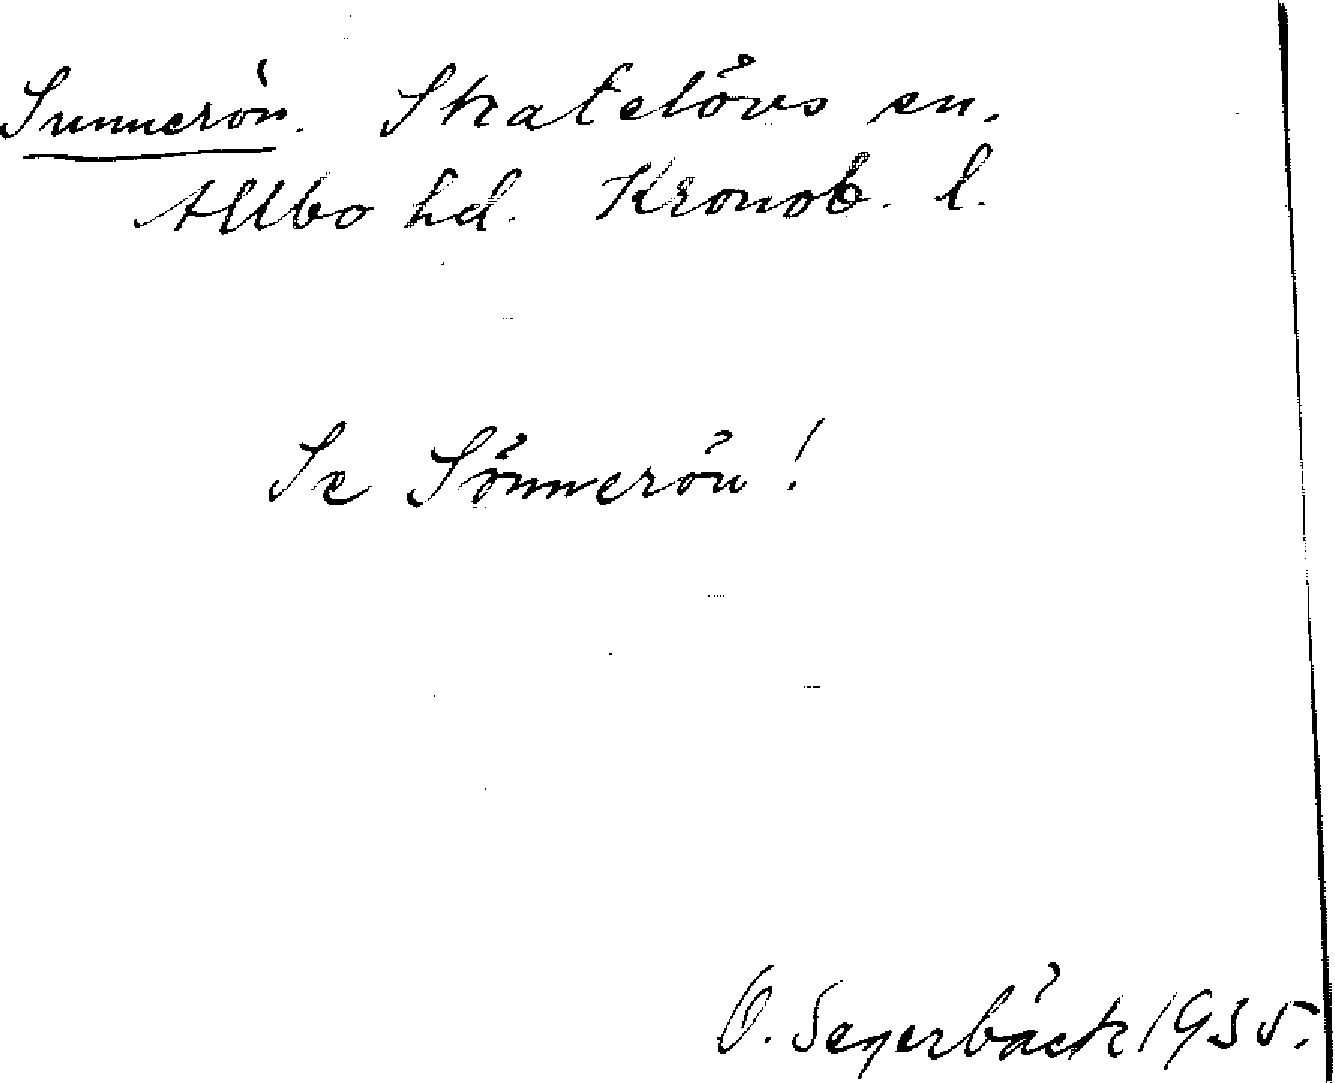 Sunnerön. Skatelövs sn.
Allbo hd. Kronob. l.
Se Sönnerön!
O. Segerbäck 1935.